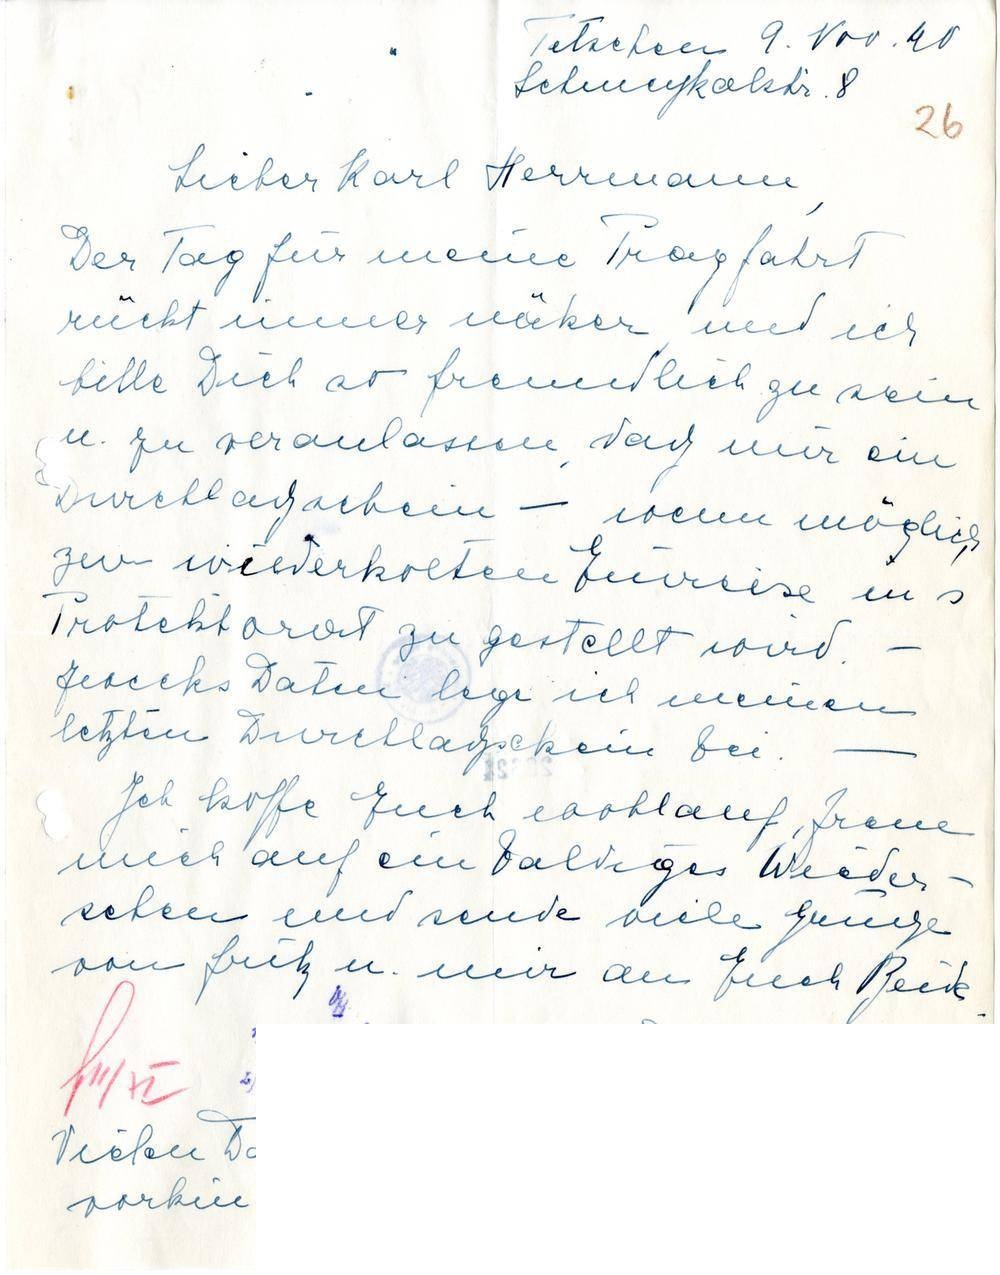 Tetschen 9. Nov. 40
Schmeykalstr. 8
26
Lieber Karl Herrmann,
Der Tag für meine Pragfahrt
rückt immer näher, und ich
bitte Dich so freundlich zu sein
u. zu veranlassen, daß mir ein
Durchlaßschein — wenn möglich,
zur wiederholten Einreise ins
Protektorat zu gestellt wird. —
Zwecks Daten lege ich meinen
letzten Durchlaßschein bei. —
Ich hoffe Euch wohlauf, freue
mich auf ein baldiges Wieder-
sehen und sende viele Grüße
von Fritz u. mir an Euch Beide.
Vielen
vorhin